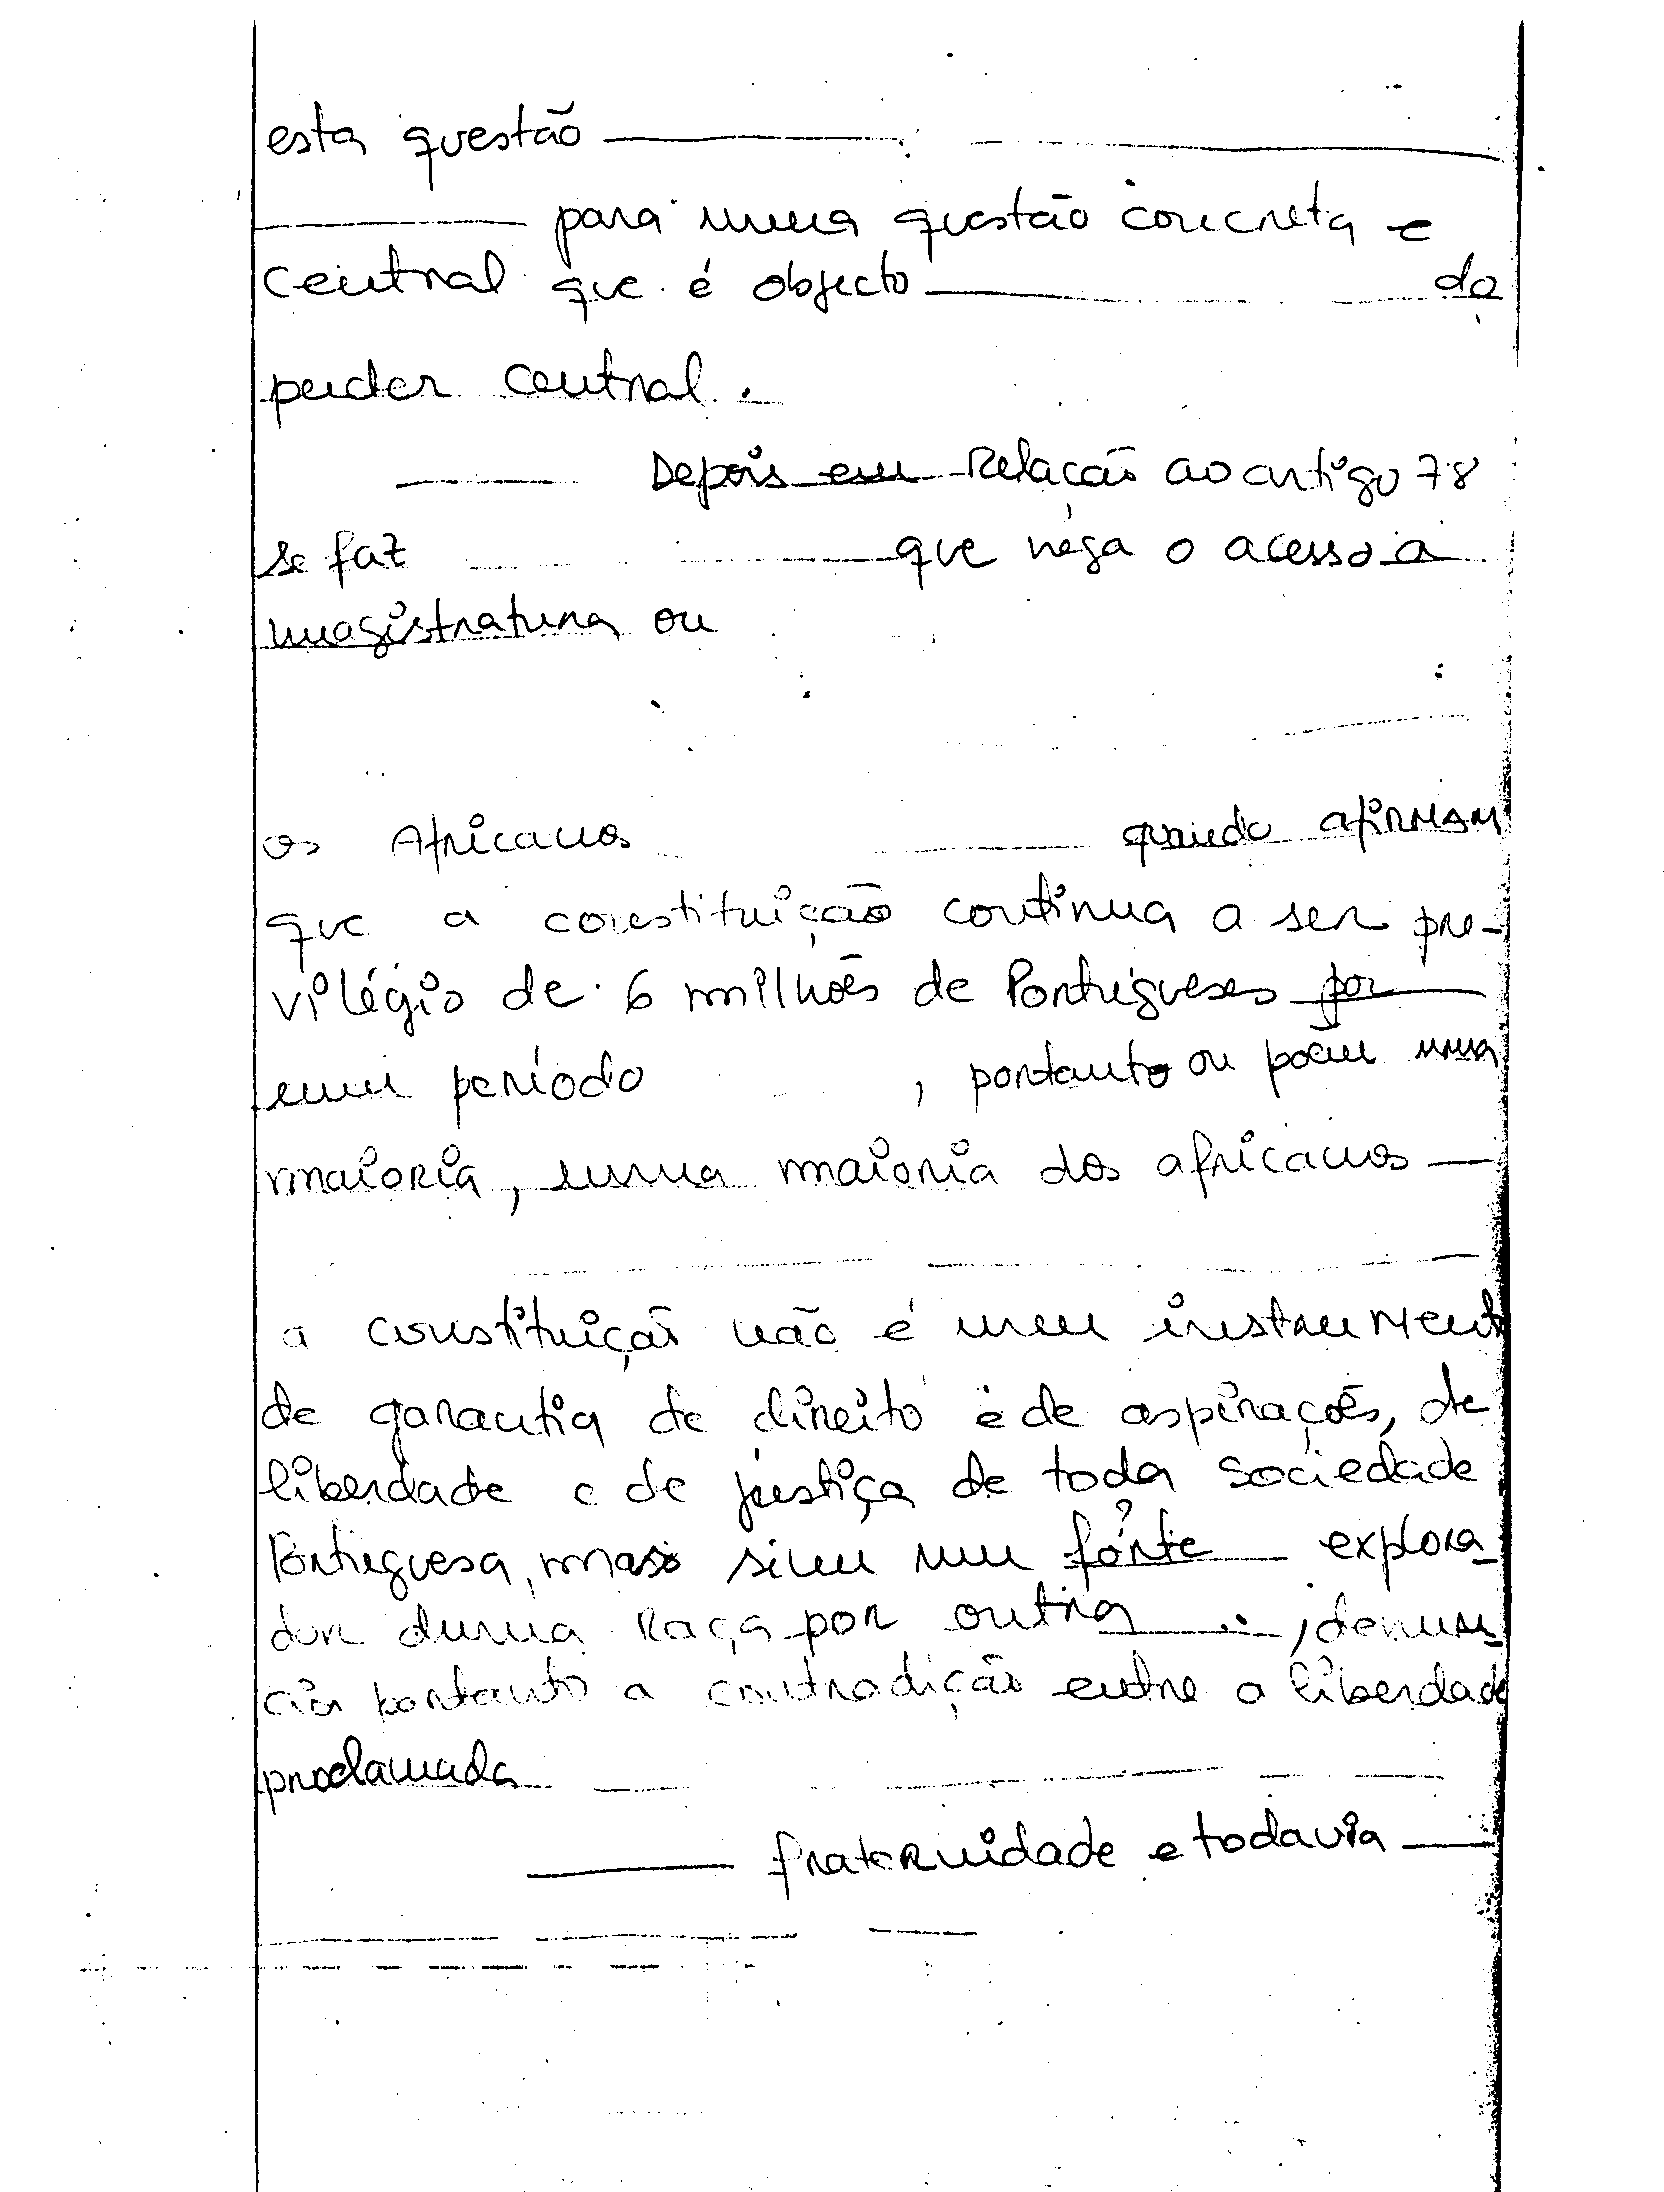 esta questão
para uma questão concreta e
central que é objecto do
puder central.
Depois em Relação ao artigo 78
se faz que nega o acesso a
magistratura ou
os Africanos quando afirmam
que a constituição continua a ser pre-
vilégio de 6 milhões de Portugueses por
um período , portanto ou poem uma
maioria, uma maioria dos africanos
a constituição não é um instrument
de garantia de direito e de aspirações, de
liberdade e de justiça de toda sociedade
Portuguesa, mas sim um fonte explora-
dor duma Raça por outra , denun-
cia portanto a contradição entre a liberdade
proclamada
fraternidade e todavia